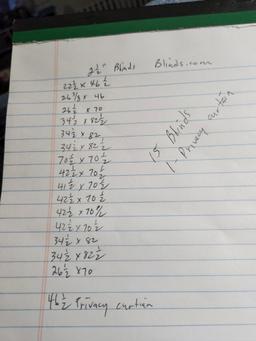 2½" Blinds Blinds.com
22½ x 46½
26⅜ x 46
26½ x 70
34½ x 82½
34½ x 82
34½ x 82½
70½ x 70½
42½ x 70½
41½ x 70½
42½ x 70½
42½ x 70½
42½ x 70½
34½ x 82
34½ x 82½
26½ x 70
15 Blinds
1 - Privacy curtain
46½ Privacy curtian